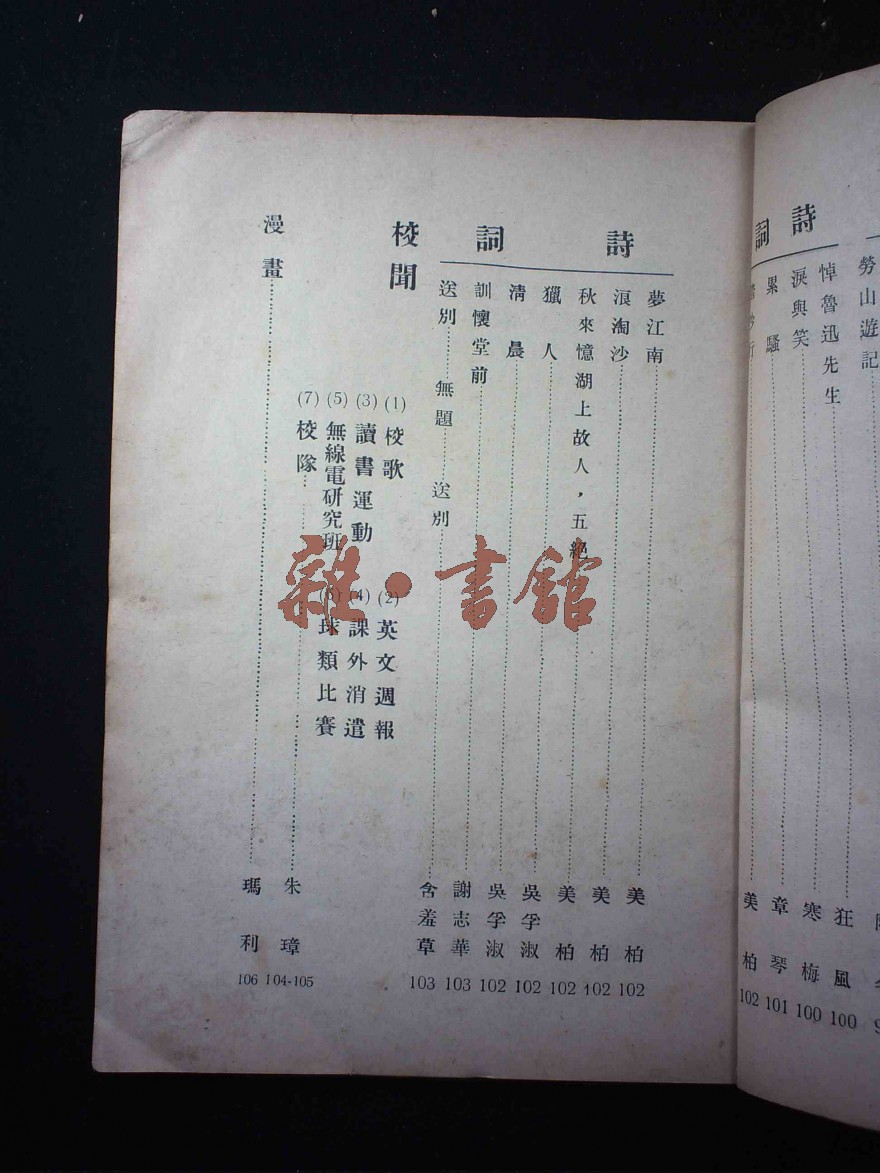 勞山遊記
詩詞
悼魯迅先生 狂風 100
淚與笑 寒梅 100
累騷 章琴 101
美柏 102
詩詞
夢江南 美柏 102
浪淘沙 美柏 102
秋來憶湖上故人,五絕 美柏 102
獵人 吳孚淑 102
清晨 吳孚淑 102
訓懷堂前 謝志華 103
送別……無題……送別 含羞草 103
校聞
(1) 校歌 (2) 英文週報
(3) 讀書運動 (4) 課外消遣
(5) 無線電研究班 (6) 球類比賽
(7) 校隊 朱璋 104-105
漫畫 瑪利 106
雜·書館